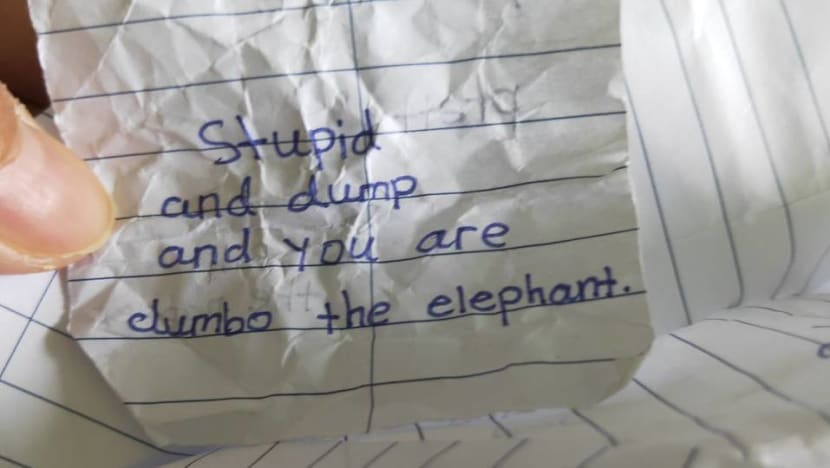 Stupid
and dump
and you are
dumbo the elephant.